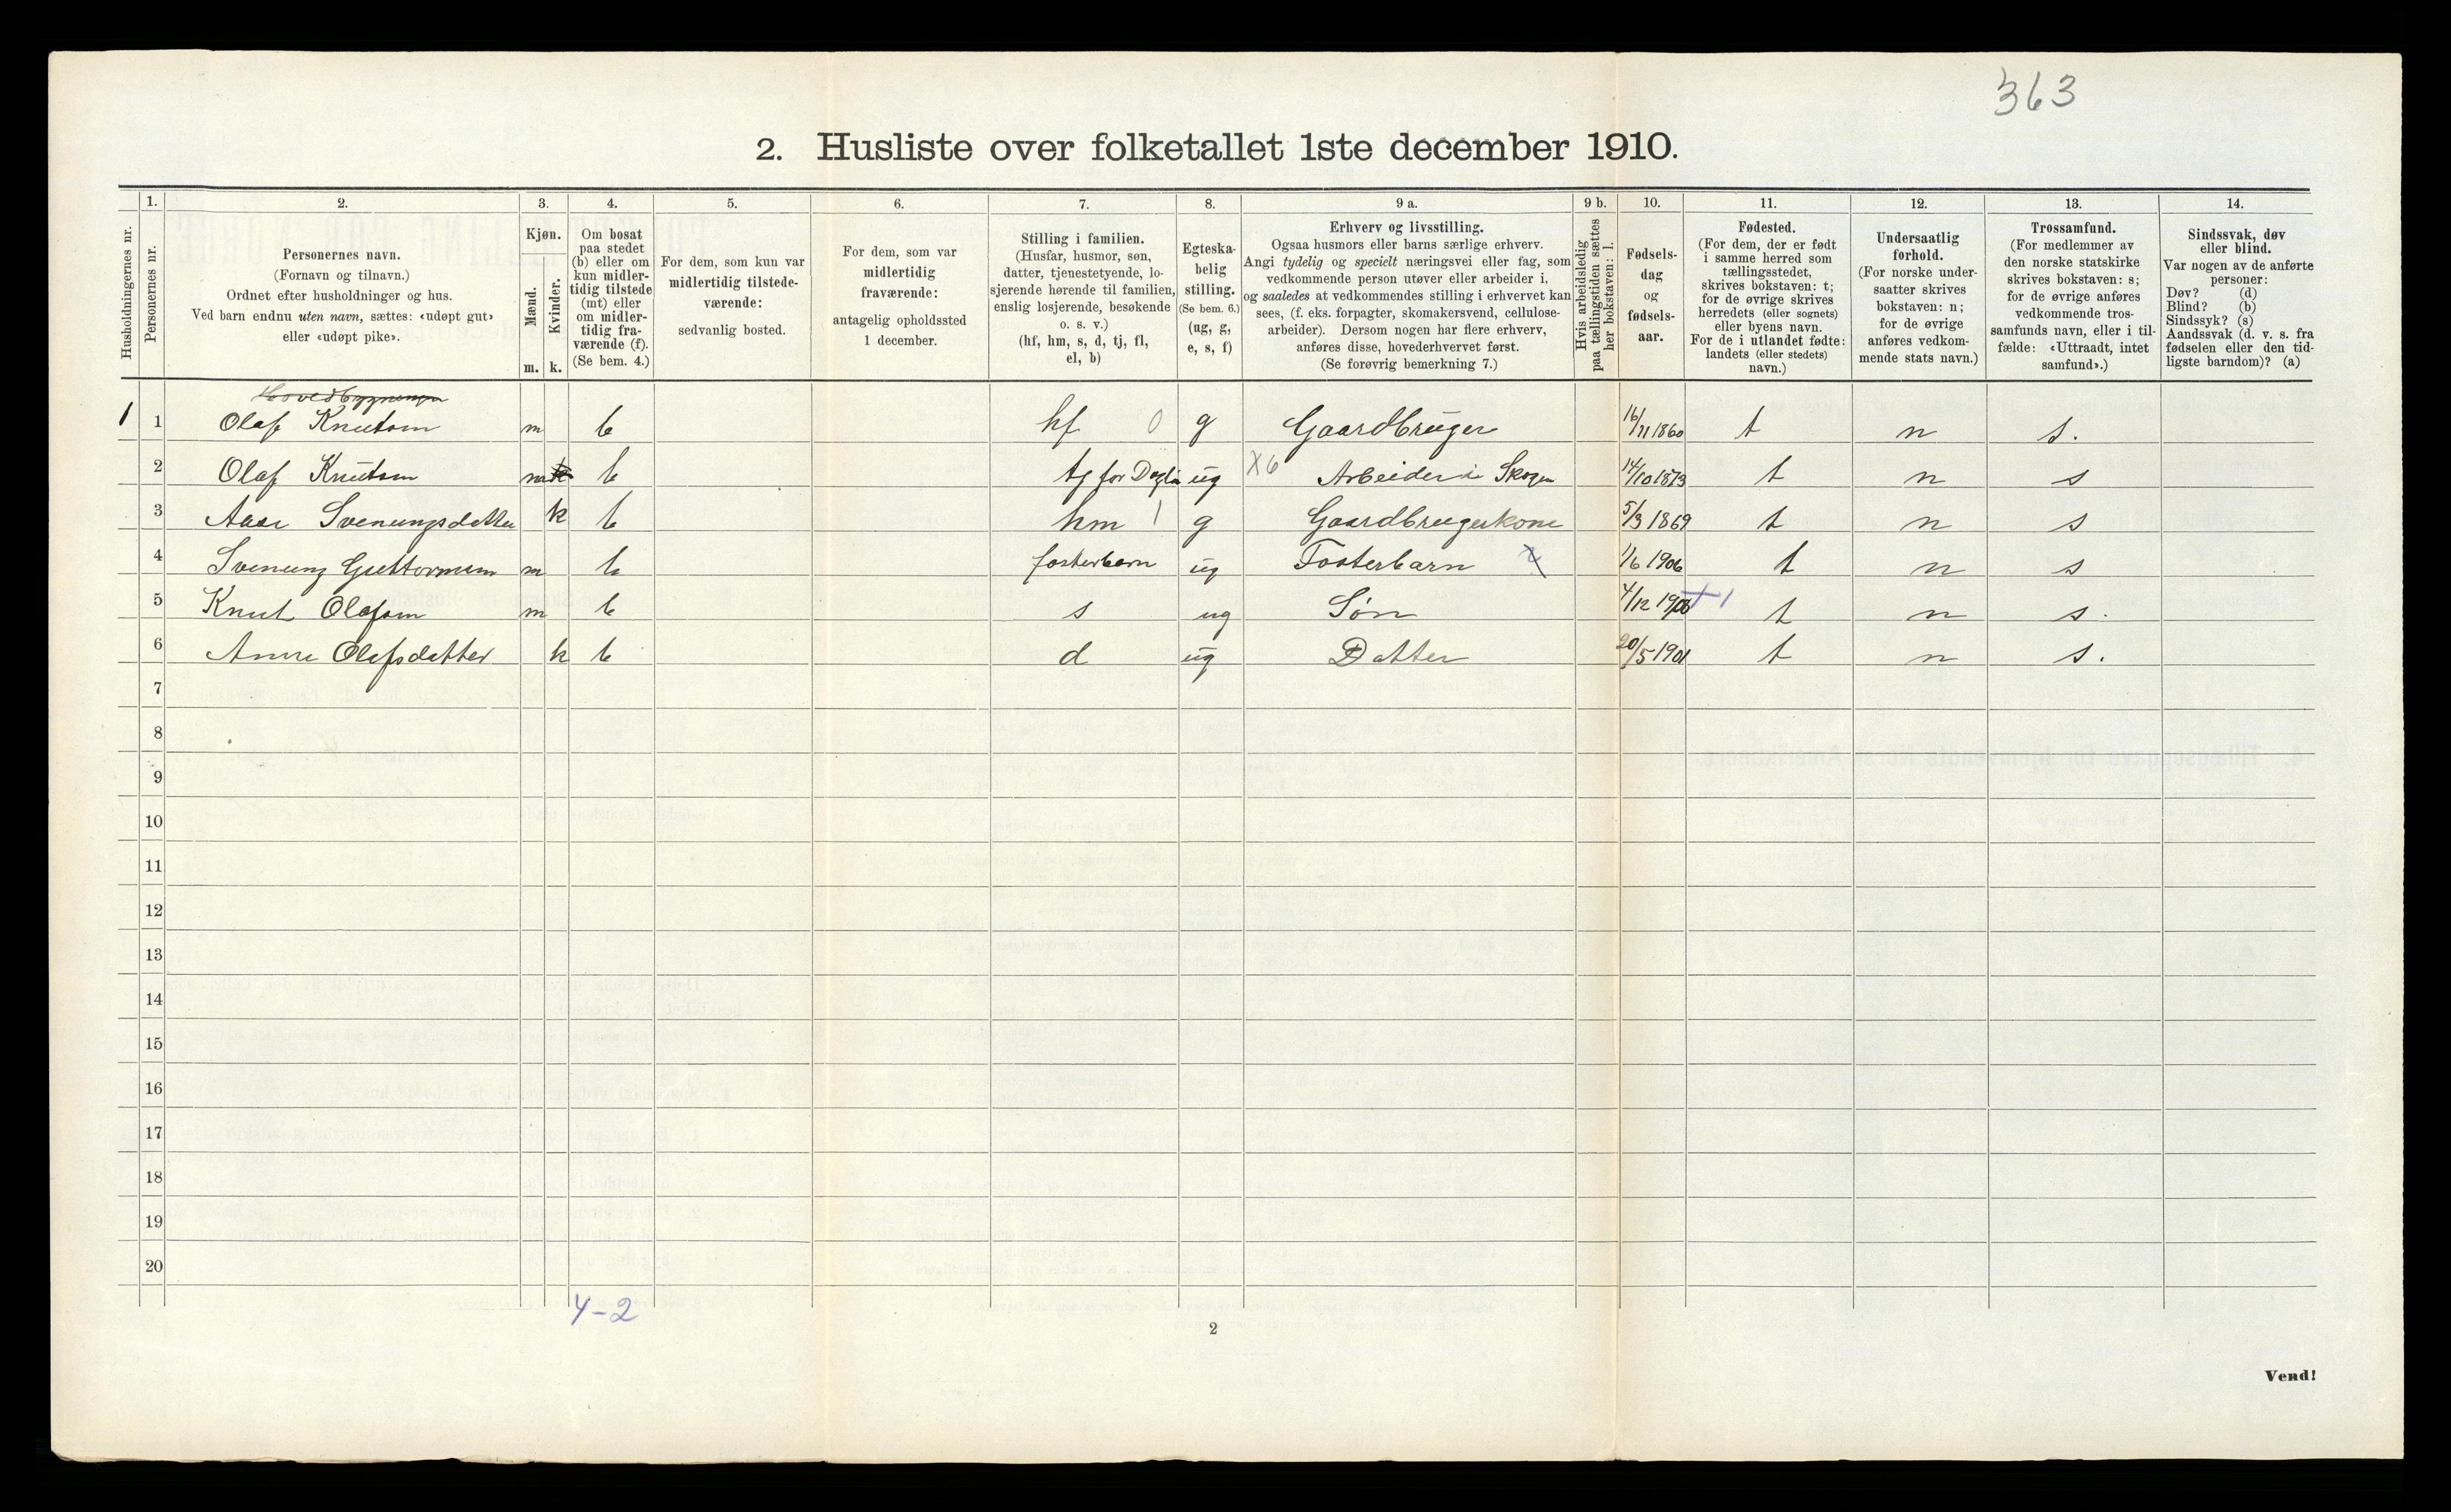 363
2. Husliste over folketallet 1ste december 1910.
Husholdningernes nr.
1.
Personernes nr.
2.
Personernes navn.
(Fornavn og tilnavn.)
Ordnet efter husholdninger og hus.
Ved barn endnu uten navn, sættes: «udøpt gut»
eller «udøpt pike».
3.
Kjøn.
Mænd.
Kvinder.
m. k.
4.
Om bosat
paa stedet
(b) eller om
kun midler-
tidig tilstede
(mt) eller
om midler-
tidig fra-
værende (f).
(Se bem. 4.)
5.
For dem, som kun var
midlertidig tilstede-
værende:
sedvanlig bosted.
6.
For dem, som var
midlertidig
fraværende:
antagelig opholdssted
1 december.
7.
Stilling i familien.
(Husfar, husmor, søn,
datter, tjenestetyende, lo-
sjerende hørende til familien,
enslig losjerende, besøkende
o. s. v.)
(hf, hm, s, d, tj, fl,
el, b)
8.
Egteska-
belig
stilling.
(Se bem. 6.)
(ug, g,
e, s, f)
9 a.
Erhverv og livsstilling.
Ogsaa husmors eller barns særlige erhverv.
Angi tydelig og specielt næringsvei eller fag, som
vedkommende person utøver eller arbeider i,
og saaledes at vedkommendes stilling i erhvervet kan
sees, (f. eks. forpagter, skomakersvend, cellulose-
arbeider). Dersom nogen har flere erhverv,
anføres disse, hovederhvervet først.
(Se forøvrig bemerkning 7.)
9 b.
Hvis arbeidsledig
paa tællingstiden sættes
her bokstaven: l.
10.
Fødsels-
dag
og
fødsels-
aar.
11.
Fødested.
(For dem, der er født
i samme herred som
tællingsstedet,
skrives bokstaven: t;
for de øvrige skrives
herredets (eller sognets)
eller byens navn.
For de i utlandet fødte:
landets (eller stedets)
navn.)
12.
Undersaatlig
forhold.
(For norske under-
saatter skrives
bokstaven: n;
for de øvrige
anføres vedkom-
mende stats navn.)
13.
Trossamfund.
(For medlemmer av
den norske statskirke
skrives bokstaven: s;
for de øvrige anføres
vedkommende tros-
samfunds navn, eller i til-
fælde: «Uttraadt, intet
samfund».)
14.
Sindssvak, døv
eller blind.
Var nogen av de anførte
personer:
Døv? (d)
Blind? (b)
Sindssyk? (s)
Aandssvak (d. v. s. fra
fødselen eller den tid-
ligste barndom)? (a)
Hovedbygningen
1 1 Olaf Knutsen m b hf 0 g Gaardbruger 16/11 1860 t n s.
2 Olaf Knutsen m k b tj for ug X6 Arbeider i Skogen 14/10 1873 t n s
3 Aase Svenungsdatter k b hm 1 g Gaardbrugerkone 5/3 1869 t n s
4 Svenung Guttormsen m b fosterbarn ug Fosterbarn 1/6 1906 t n s
5 Knut Olafsen m b s ug Søn 4/12 t n s.
6 Anne Olafsdatter k b d ug Datter 20/5 1901 t n s.
7
8
9
10
11
12
13
14
15
16
17
18
19
20
4-2
2
Vend!